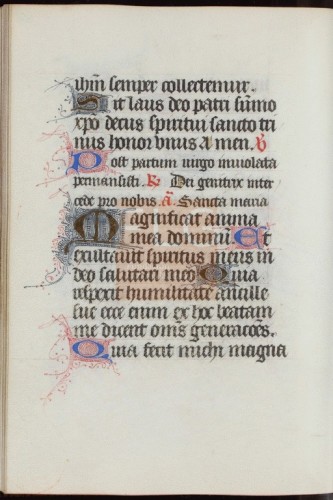 ihm̄ semper collectemur.
Sit laus deo patri sūmo
xpo decus spiritui sancto tri
nus honor vnus Amen. V̄
Post partum uirgo inuiolata
permansisti. R̄ Dei genitrix inter
cede pro nobis. A̅ Sancta maria
Magnificat anima
mea dominū Et
exultauit spiritus meus in
deo salutari meo Quia
respexit humilitatē ancille
sue ecce enim ex hoc beatam
me dicent om̄s generacōes.
Quia fecit michi magna